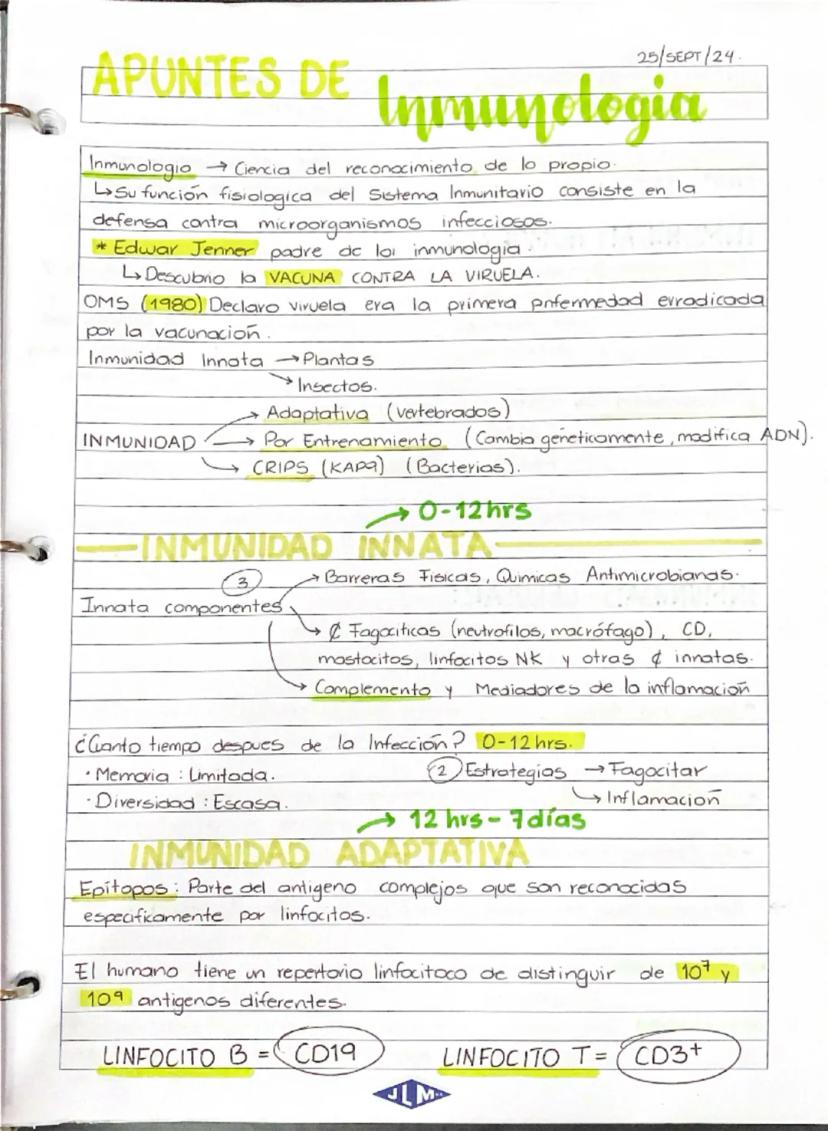 25/SEPT/24.
APUNTES DE Inmunologia
Inmunologio → Ciencia del reconocimiento de lo propio.
↳ Su función fisiologica del Sistema Inmunitario consiste en la
defensa contra microorganismos infecciosos.
* Edwar Jenner padre de la inmunologia.
↳ Descubrio la VACUNA CONTRA LA VIRUELA.
OMS (1980) Declaro viruela era la primera enfermedad erradicada
por la vacunación.
Inmunidad Innata → Plantas
→ Insectos.
→ Adaptativa (vertebrados)
INMUNIDAD → Por Entrenamiento (Cambia géneticamente, modifica ADN).
→ CRIPS (KAPA) (Bacterias).
→ 0-12hrs
INMUNIDAD INNATA
③ → Barreras Fisicas, Quimicas Antimicrobianas.
Innata componentes
→ ₵ Fagociticas (neutrofilos, macrófago), CD,
mastocitos, linfocitos NK y otras ₵ innatas.
→ Complemento y Mediadores de la inflamación
¿Cuanto tiempo despues de la Infección? 0-12hrs.
· Memoria : Limitada. ② Estrategias → Fagocitar
· Diversidad : Escasa. ↳ Inflamación
→ 12 hrs - 7días
INMUNIDAD ADAPTATIVA
Epítopos : Parte del antigeno complejos que son reconocidas
especificamente por linfocitos.
El humano tiene un repertorio linfocitoco de distinguir de 10⁷ y
10⁹ antigenos diferentes.
LINFOCITO B = CD19 LINFOCITO T = CD3+
JLM